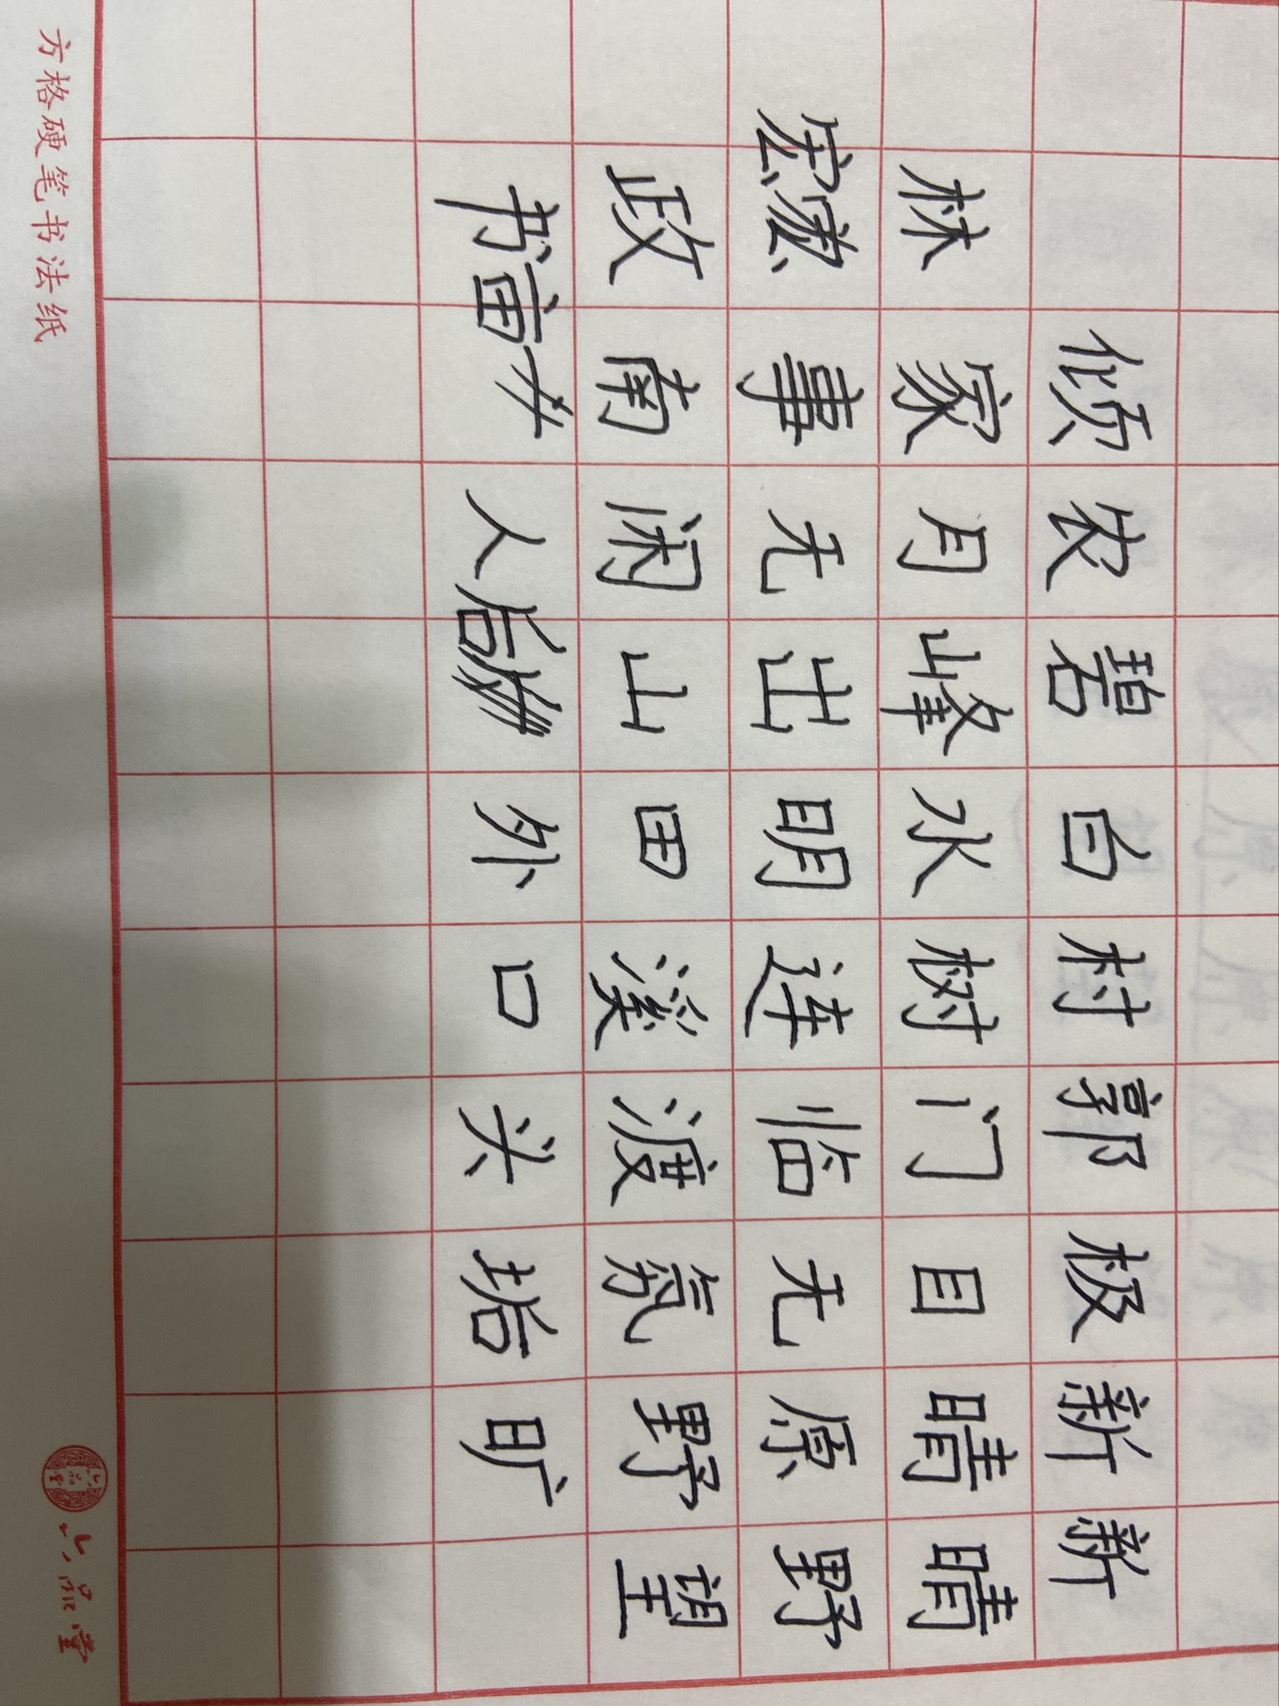 新晴野望
新晴原野旷
极目无氛垢
郭门临渡头
村树连溪口
白水明田外
碧峰出山后
农月无闲人
倾家事南亩
林宏政书
方格硬笔书法纸
六品堂